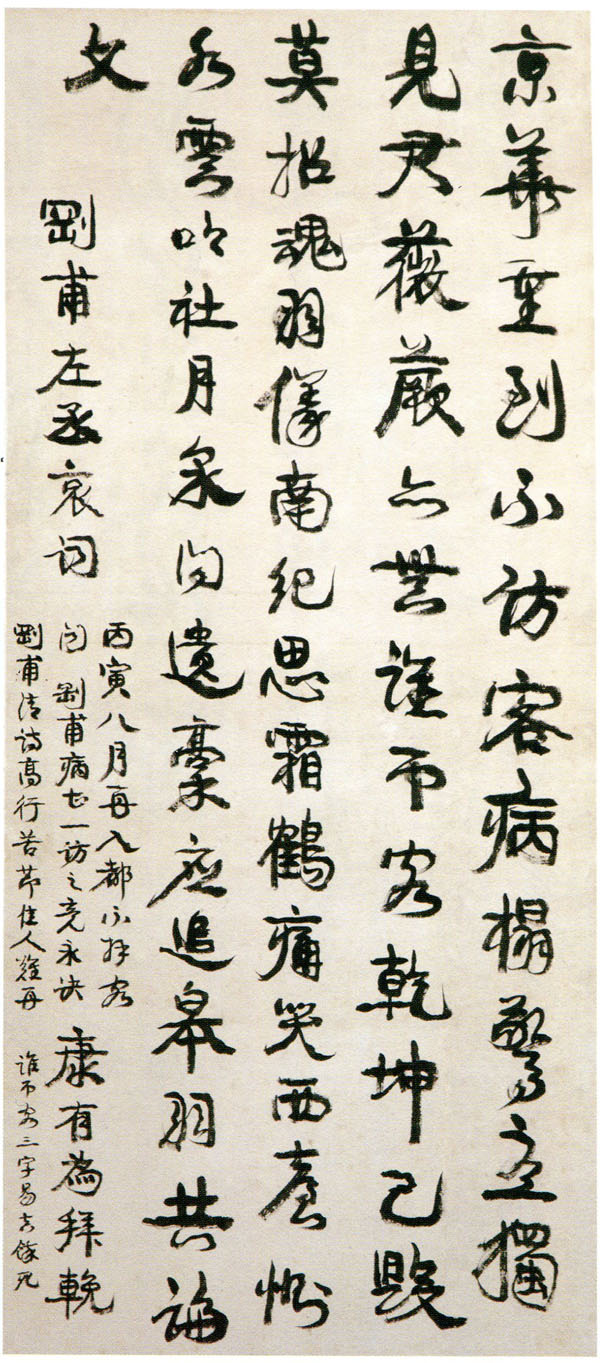 京華重到不訪客病榻驚立獨
見君薇蕨亦無誰而客乾坤已毀
莫招魂羽儀南紀思霜鶴痛哭西臺惻
水雲吟社月泉問遺稾應追皋羽共論
文
剛甫左丞哀詞
丙寅八月再入都不拜客
聞剛甫病甚一訪之竟永訣
剛甫清詩高行苦節佳人難再
康有為拜輓
誰而客三字易去餘死